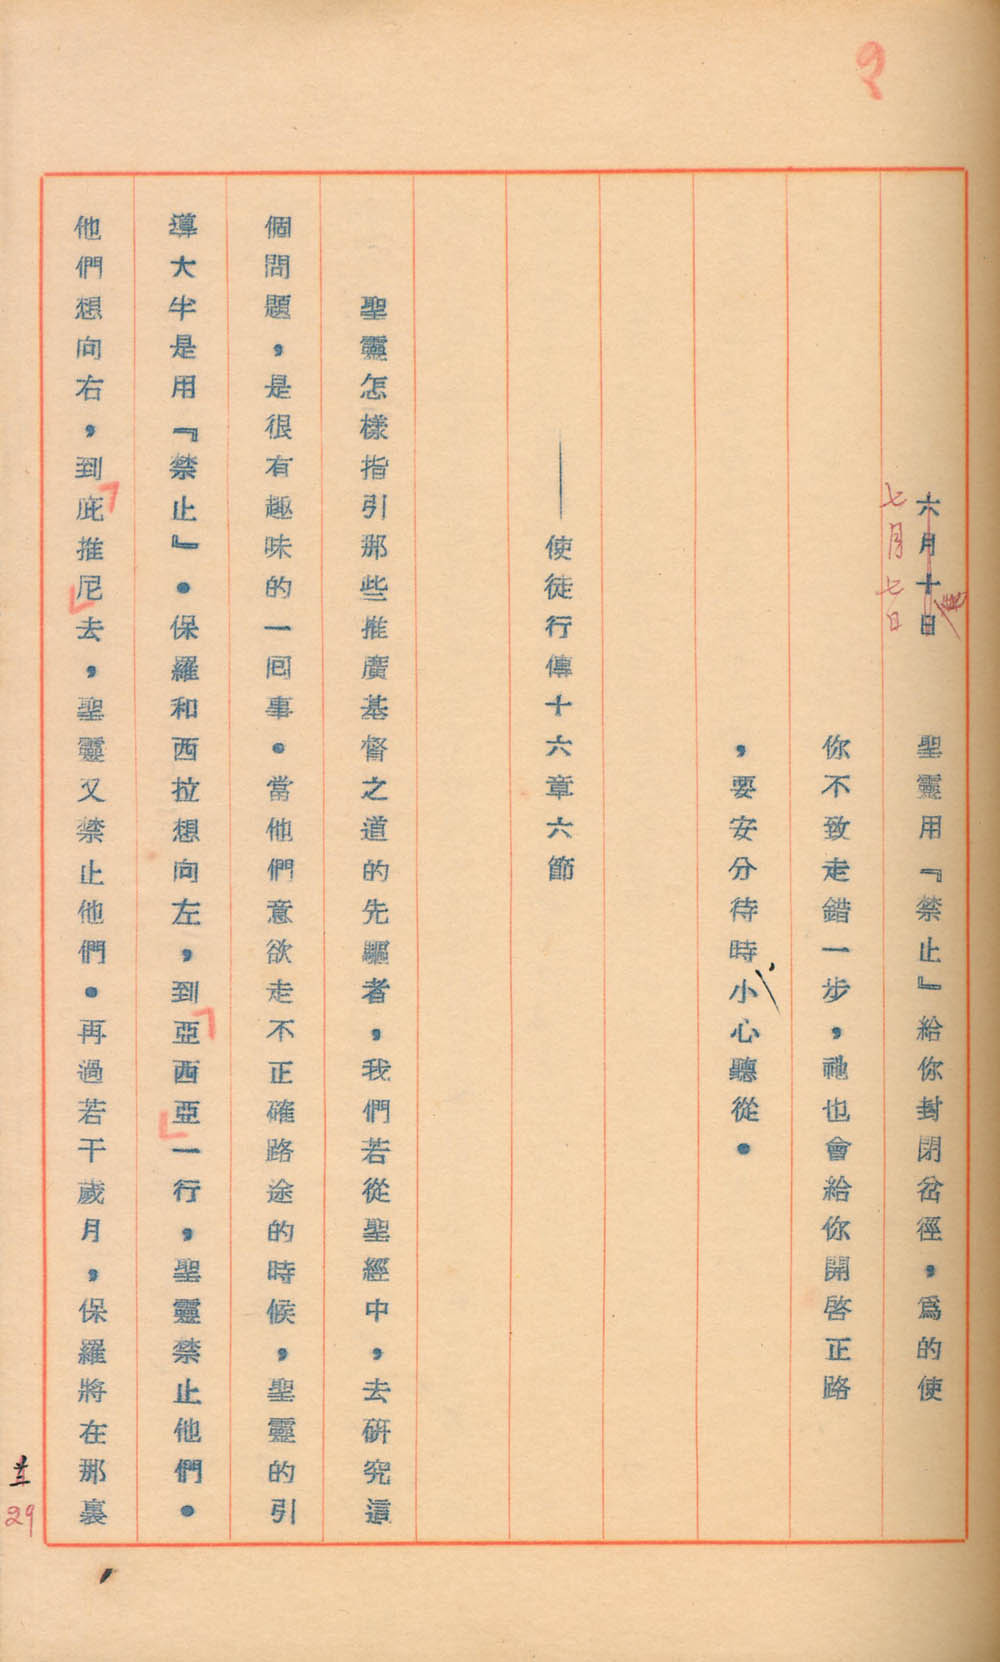 六月十日
七月七日
聖靈用『禁止』給你封閉岔徑，爲的使
你不致走錯一步，祂也會給你開啓正路
，要安分待時小心聽從。
——使徒行傳十六章六節
聖靈怎樣指引那些推廣基督之道的先驅者，我們若從聖經中，去研究這
個問題，是很有趣味的一囘事。當他們意欲走不正確路途的時候，聖靈的引
導大半是用『禁止』。保羅和西拉想向左，到「亞西亞」一行，聖靈禁止他們。
他們想向右，到「庇推尼」去，聖靈又禁止他們。再過若干歲月，保羅將在那裏
29